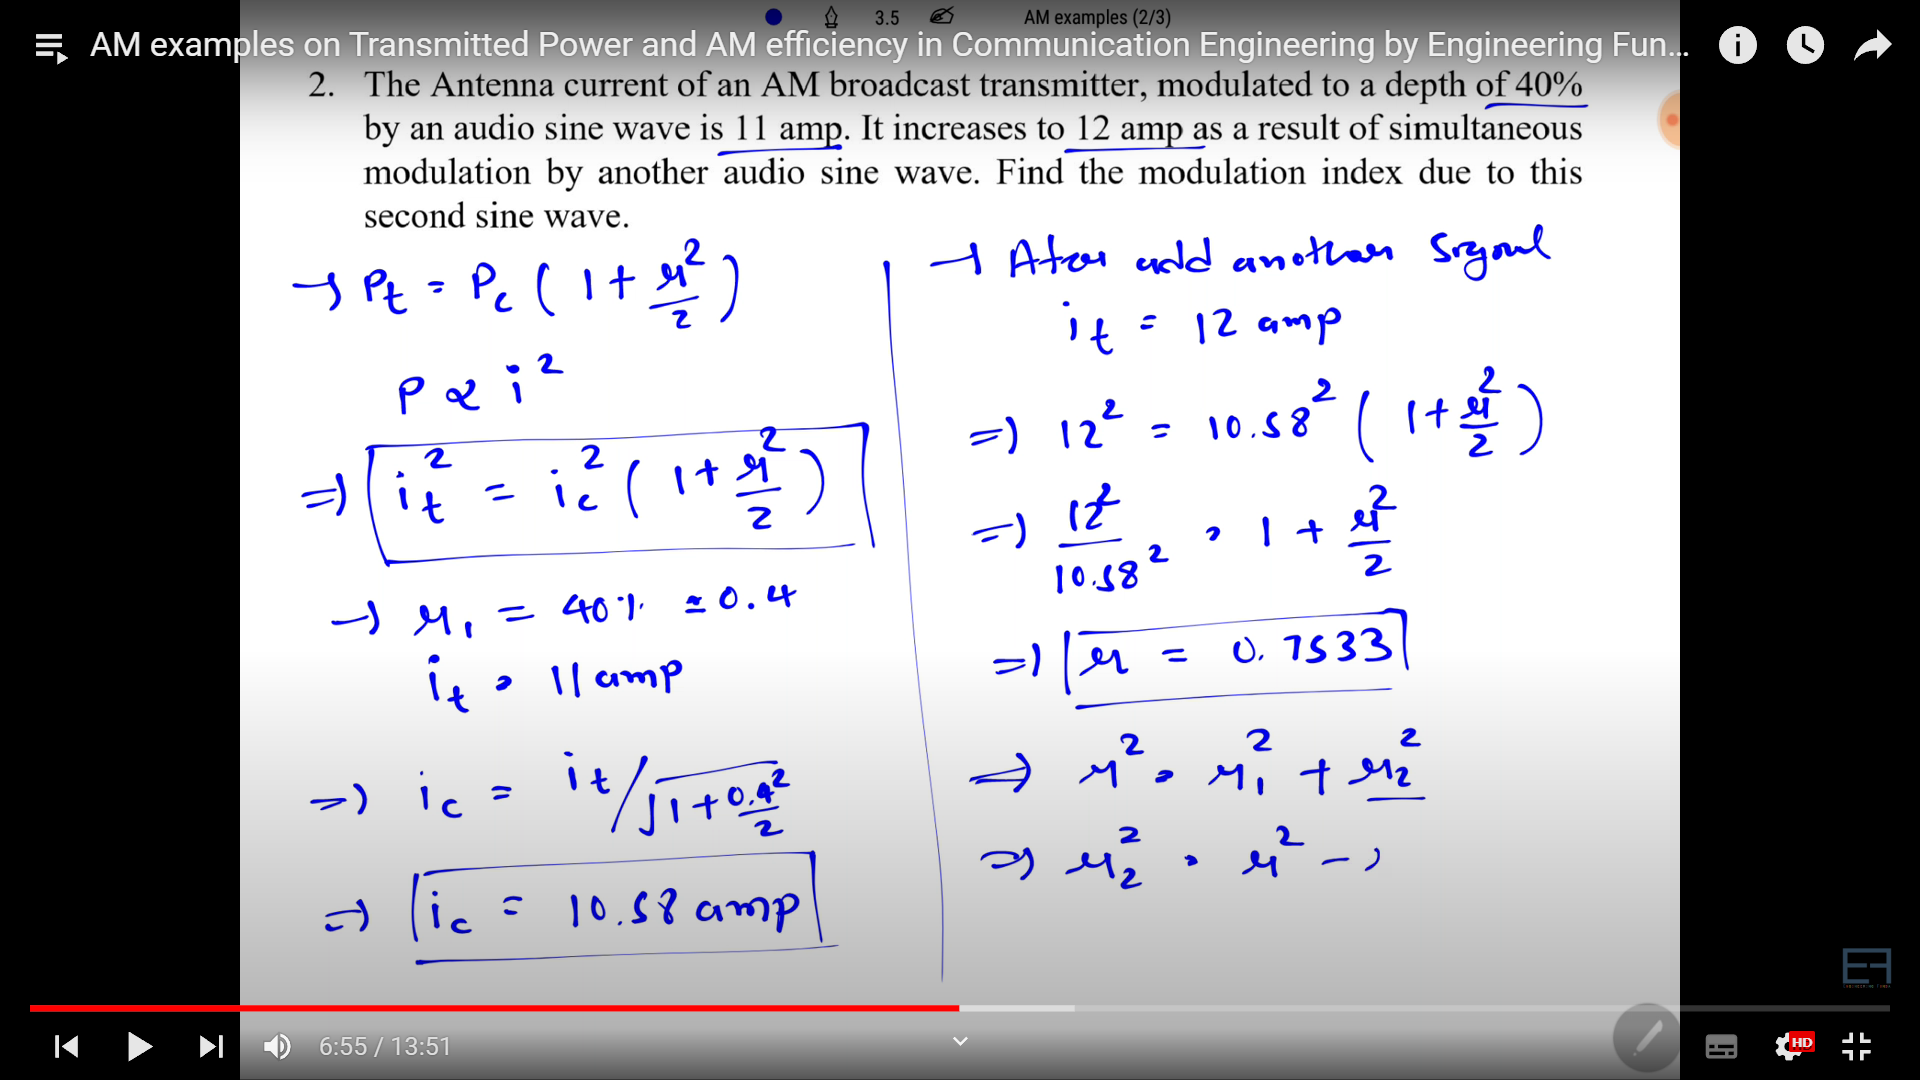 3.5 AM examples (2/3)
AM examples on Transmitted Power and AM efficiency in Communication Engineering by Engineering Fun...
2. The Antenna current of an AM broadcast transmitter, modulated to a depth of 40%
by an audio sine wave is 11 amp. It increases to 12 amp as a result of simultaneous
modulation by another audio sine wave. Find the modulation index due to this
second sine wave.
→ Pt = Pc ( 1 + μ²/2 )
P ∝ i²
⇒ it² = ic² ( 1 + μ²/2 )
→ μ₁ = 40% = 0.4
it = 11 amp
⇒ ic = it/√1+0.4²/2
⇒ ic = 10.58 amp
→ After add another signal
it = 12 amp
⇒ 12² = 10.58² ( 1 + μ²/2 )
⇒ 12²/10.58² = 1 + μ²/2
⇒ μ = 0.7533
⇒ μ² = μ₁² + μ₂²
⇒ μ₂² = μ² -
EF
6:55 / 13:51
HD